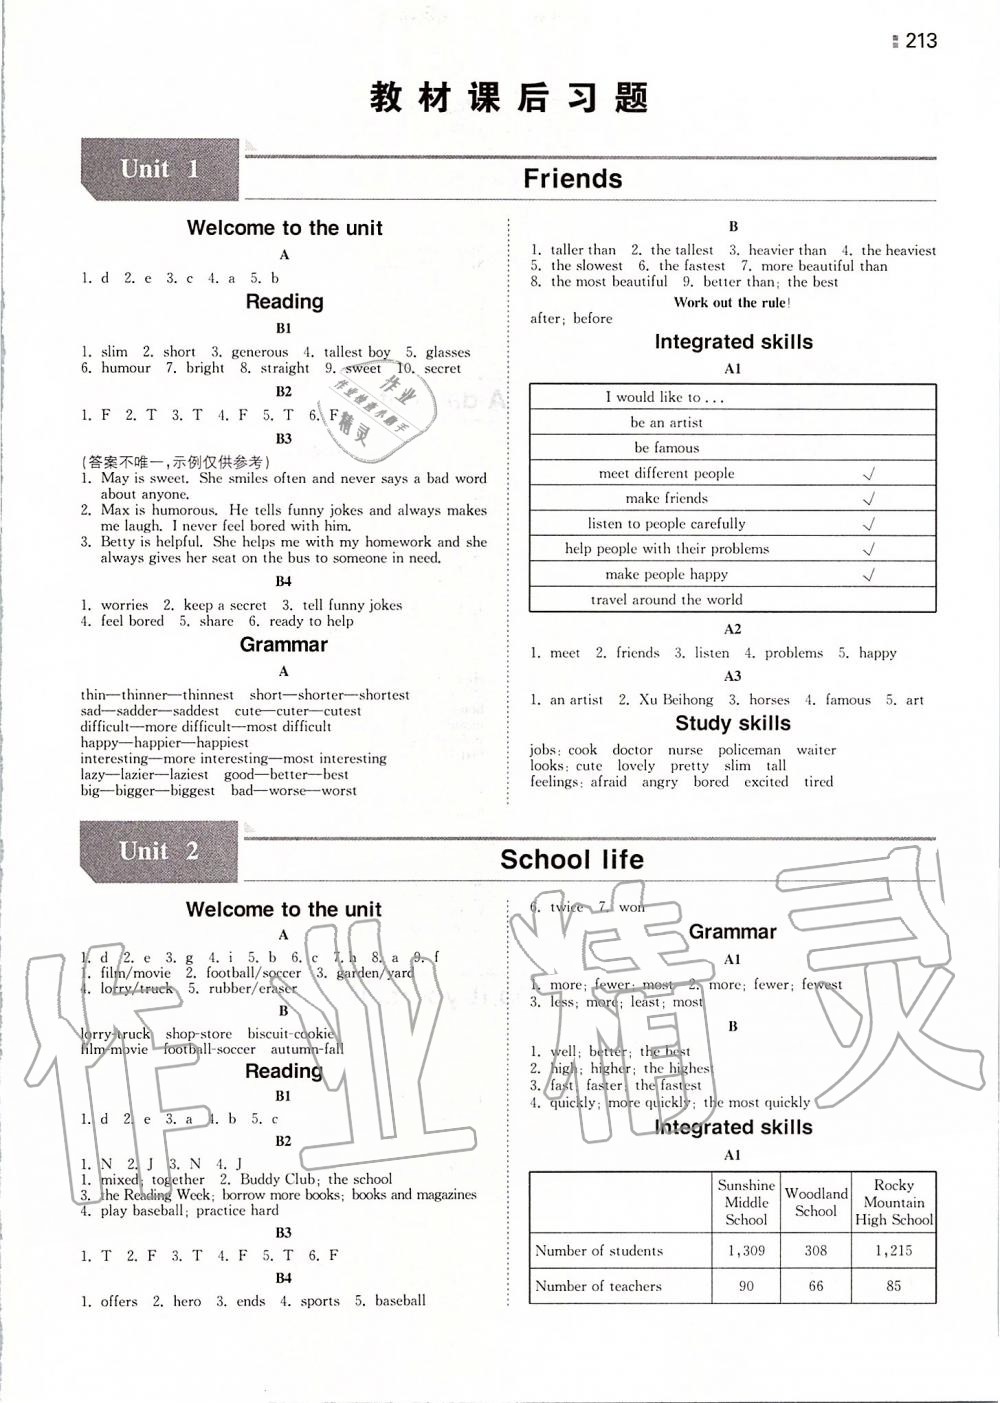 213
教材课后习题
Unit 1
Friends
Welcome to the unit
A
1. d 2. e 3. c 4. a 5. b
Reading
B1
1. slim 2. short 3. generous 4. tallest boy 5. glasses
6. humour 7. bright 8. straight 9. sweet 10. secret
B2
1. F 2. T 3. T 4. F 5. T 6. F
B3
(答案不唯一,示例仅供参考)
1. May is sweet. She smiles often and never says a bad word
about anyone.
2. Max is humorous. He tells funny jokes and always makes
me laugh. I never feel bored with him.
3. Betty is helpful. She helps me with my homework and she
always gives her seat on the bus to someone in need.
B4
1. worries 2. keep a secret 3. tell funny jokes
4. feel bored 5. share 6. ready to help
Grammar
A
thin—thinner—thinnest short—shorter—shortest
sad—sadder—saddest cute—cuter—cutest
difficult—more difficult—most difficult
happy—happier—happiest
interesting—more interesting—most interesting
lazy—lazier—laziest good—better—best
big—bigger—biggest bad—worse—worst
B
1. taller than 2. the tallest 3. heavier than 4. the heaviest
5. the slowest 6. the fastest 7. more beautiful than
8. the most beautiful 9. better than; the best
Work out the rule!
after; before
Integrated skills
A1
I would like to...
be an artist
be famous
meet different people √
make friends √
listen to people carefully √
help people with their problems √
make people happy √
travel around the world
A2
1. meet 2. friends 3. listen 4. problems 5. happy
A3
1. an artist 2. Xu Beihong 3. horses 4. famous 5. art
Study skills
jobs: cook doctor nurse policeman waiter
looks: cute lovely pretty slim tall
feelings: afraid angry bored excited tired
Unit 2
School life
Welcome to the unit
A
1. d 2. e 3. g 4. i 5. b 6. c 7. h 8. a 9. f
1. film/movie 2. football/soccer 3. garden/yard
4. lorry/truck 5. rubber/eraser
B
lorry-truck shop-store biscuit-cookie
film-movie football-soccer autumn-fall
Reading
B1
1. d 2. e 3. a 4. b 5. c
B2
1. N 2. J 3. N 4. J
1. mixed; together 2. Buddy Club; the school
3. the Reading Week; borrow more books; books and magazines
4. play baseball; practice hard
B3
1. T 2. F 3. T 4. F 5. T 6. F
B4
1. offers 2. hero 3. ends 4. sports 5. baseball
6. twice 7. won
Grammar
A1
1. more; fewer; most 2. more; fewer; fewest
3. less; more; least; most
B
1. well; better; the best
2. high; higher; the highest
3. fast; faster; the fastest
4. quickly; more quickly; the most quickly
Integrated skills
A1
Sunshine Middle School Woodland School Rocky Mountain High School
Number of students 1,309 308 1,215
Number of teachers 90 66 85
作业精灵